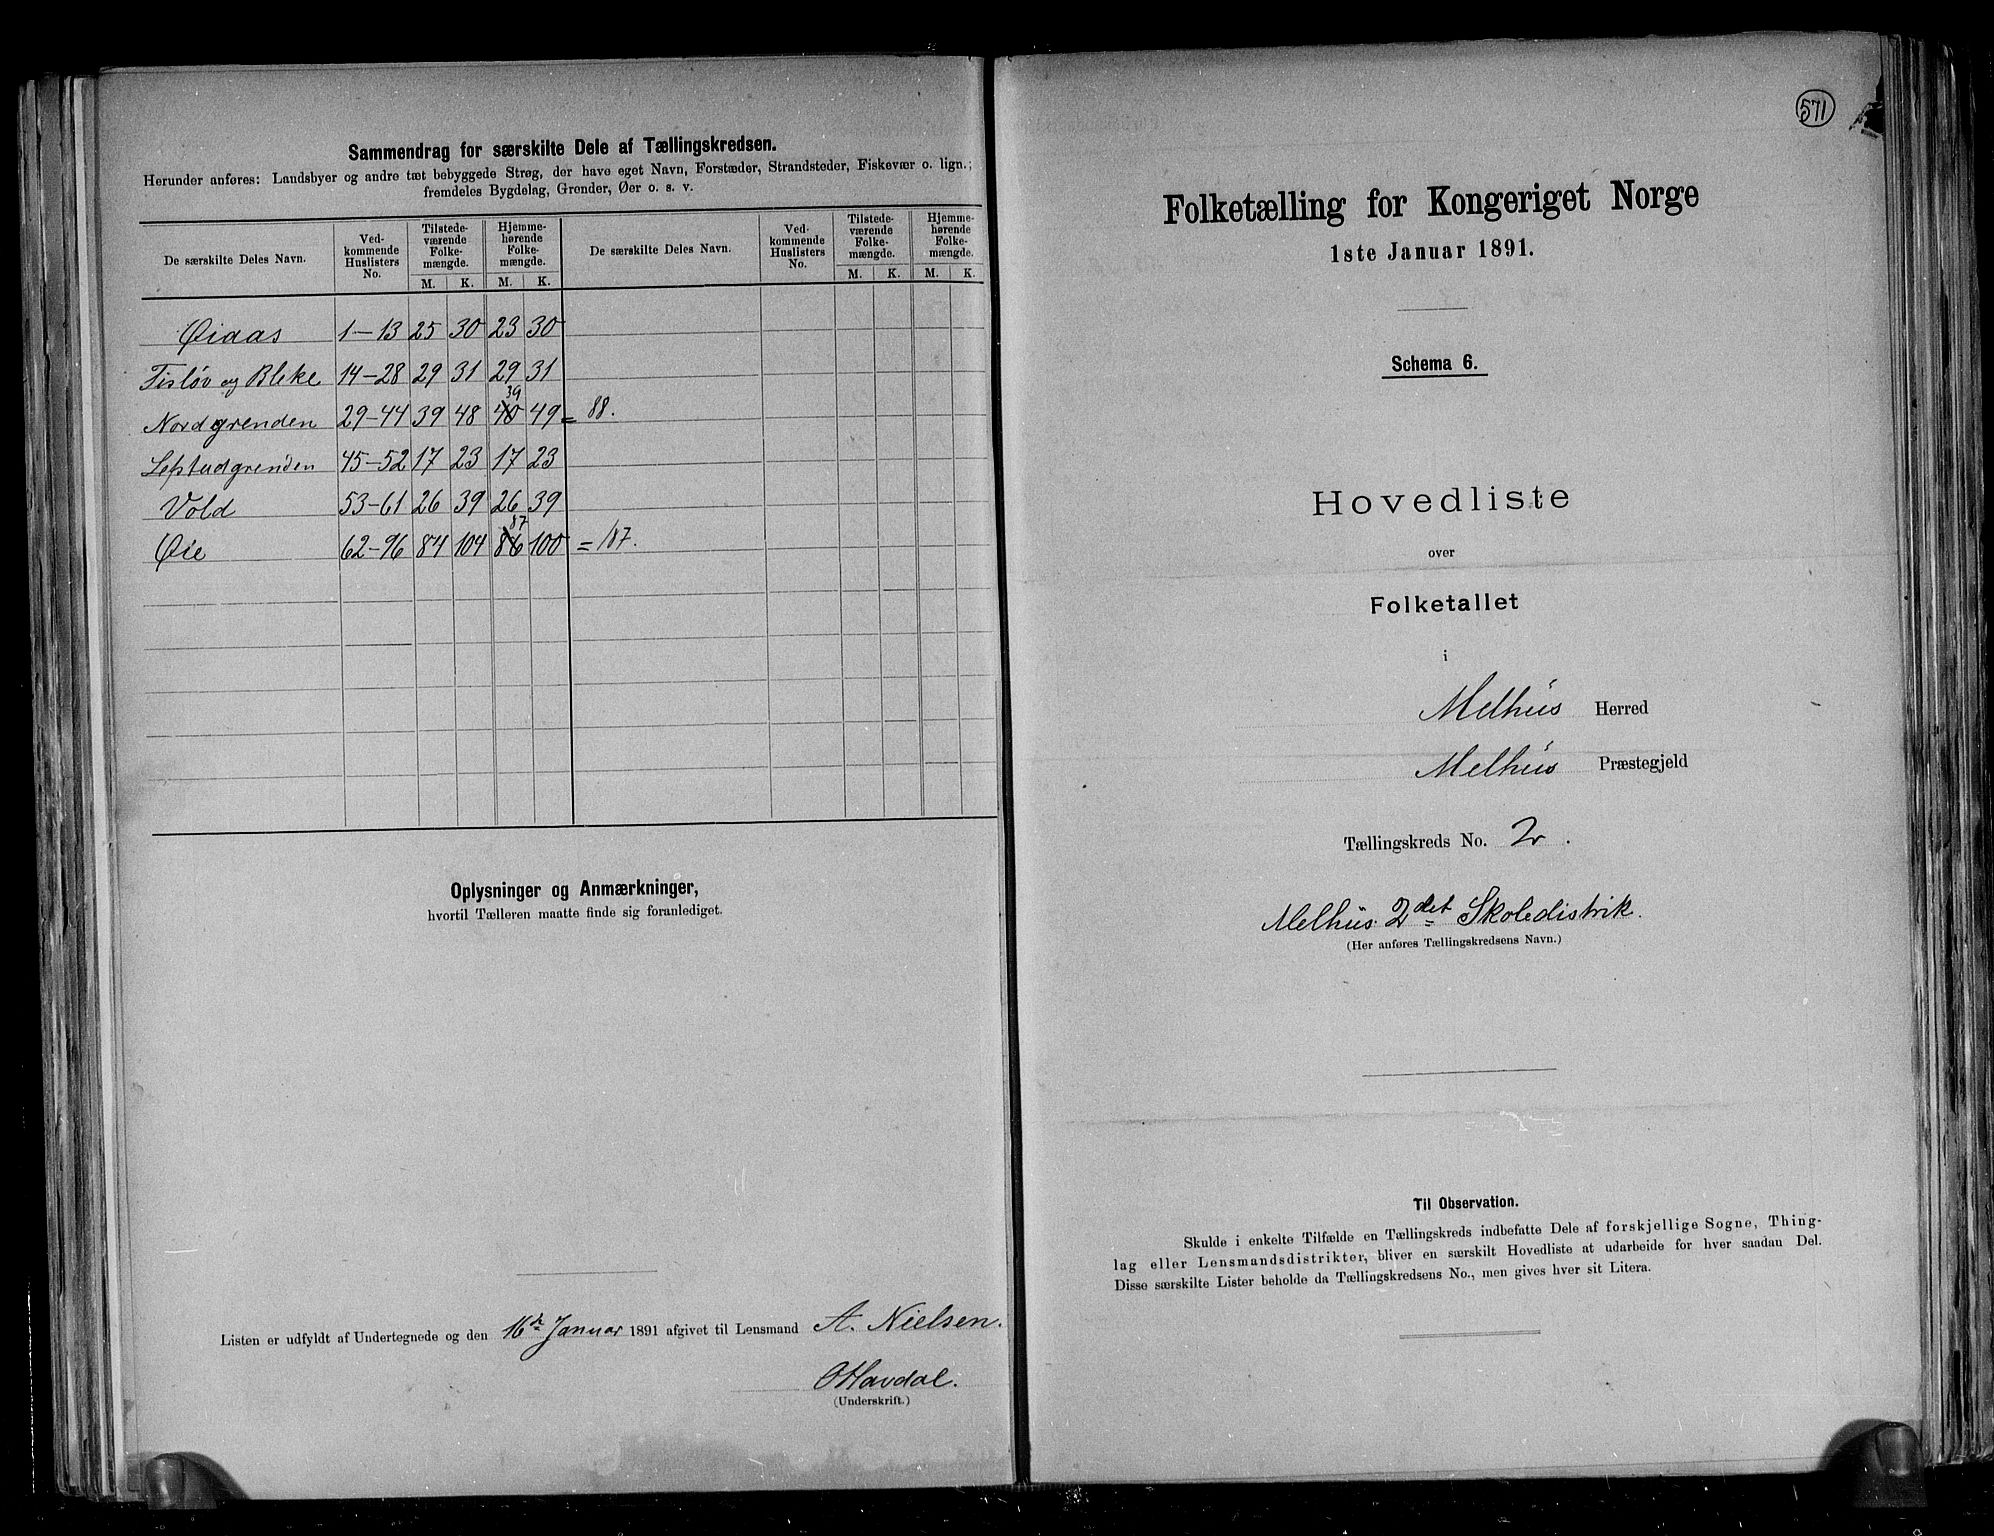 Sammendrag for særskilte Dele af Tællingskredsen.
Herunder anføres: Landsbyer og andre tæt bebyggede Strøg, der have eget Navn, Forstæder, Strandsteder, Fiskevær o. lign.;
fremdeles Bygdelag, Grender, Øer o. s. v.
De særskilte Deles Navn. Ved-kommende Huslisters No. Tilstede-værende Folke-mængde. Hjemme-hørende Folke-mængde. De særskilte Deles Navn. Ved-kommende Huslisters No. Tilstede-værende Folke-mængde. Hjemme-hørende Folke-mængde.
M. K. M. K. M. K. M. K.
Øiaas 1-13 25 30 23 30
Tisløv og Bleke 14-28 29 31 29 31
39
Nordgrenden 29-44 39 48 40 49 = 88.
45-52 17 23 17 23
Vold 53-61 26 39 26 39
87
Øie 62-96 84 104 86 100 = 187.
Oplysninger og Anmærkninger,
hvortil Tælleren maatte finde sig foranlediget.
Listen er udfyldt af Undertegnede og den 16de Januar 1891 afgivet til Lensmand A. Nielsen.
O Havdal.
(Underskrift.)
571
Folketælling for Kongeriget Norge
1ste Januar 1891.
Schema 6.
Hovedliste
over
Folketallet
i
Melhus Herred
Melhus Præstegjeld
Tællingskreds No. 2.
Melhus 2det Skoledistrik.
(Her anføres Tællingskredsens Navn.)
Til Observation.
Skulde i enkelte Tilfælde en Tællingskreds indbefatte Dele af forskjellige Sogne, Thing-
lag eller Lensmandsdistrikter, bliver en særskilt Hovedliste at udarbeide for hver saadan Del.
Disse særskilte Lister beholde da Tællingskredsens No., men gives hver sit Litera.